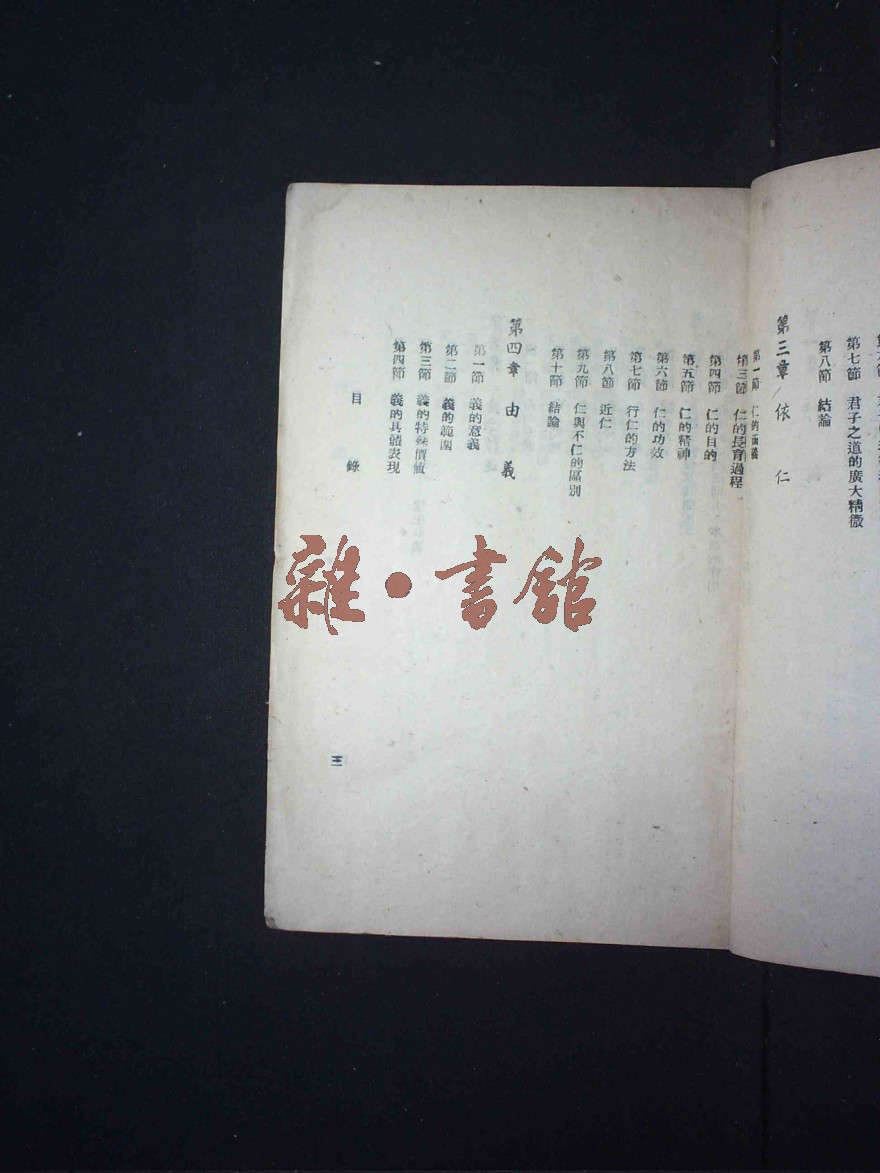 第七節 君子之道的廣大精微
第八節 結論
第三章 依仁
第一節 仁的涵義
第三節 仁的長育過程
第四節 仁的目的
第五節 仁的精神
第六節 仁的功效
第七節 行仁的方法
第八節 近仁
第九節 仁與不仁的區別
第十節 結論
第四章 由義
第一節 義的意義
第二節 義的範圍
第三節 義的特殊價值
第四節 義的具體表現
目錄
三
雜·書館